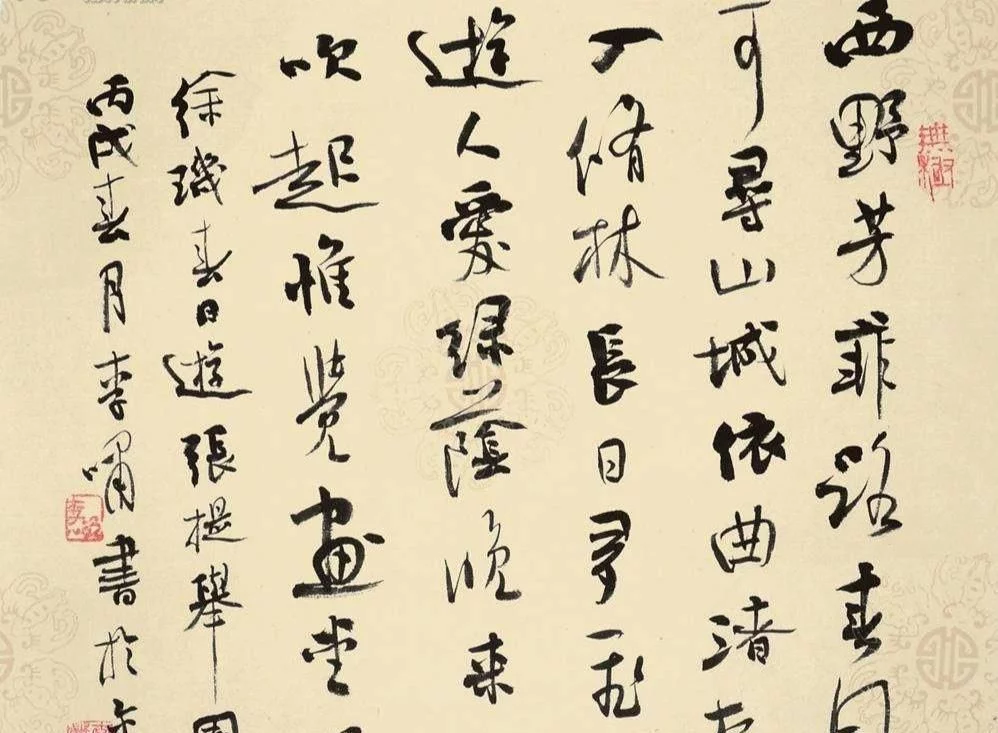 西野芳菲路春
可尋山城依曲渚
入脩林長日多飛
遊人愛綠蔭晚来
吹起惟覺畫堂
徐璣春日遊張提舉
丙戌春月李嘯書於